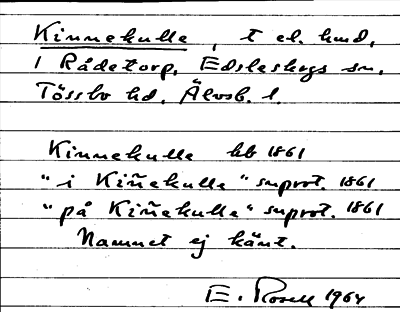 Kinnekulle, t el. hmd,
i Rådetorp, Edsleskogs sn,
Tössbo hd, Älvsb. l.
Kinnekulle hb 1861
"i Kin̄ekulle" suprot. 1861
"på Kin̄ekulle" suprot. 1861
Namnet ej känt.
E. Rosell 1964